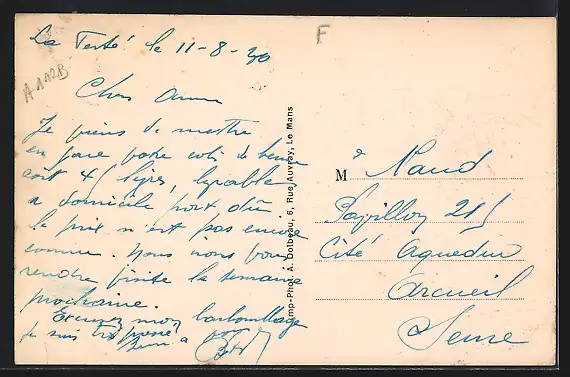 La Ferté le 11-8-30
F
A 1A2B
Chers Amis
Je viens de mettre
en gare votre colis de
soit 4 livrable
a domicile port dû
le prix n'est pas encore
connu. Nous irons vous
rendre visite la semaine
prochaine.
Excusez mon barbouillage
je suis très pressé
Imp-Phot. A. Dolbeau, 6, Rue Auvray, Le Mans
M Naud
Papillon 215
Cité Aqueduc
Arcueil
Seine